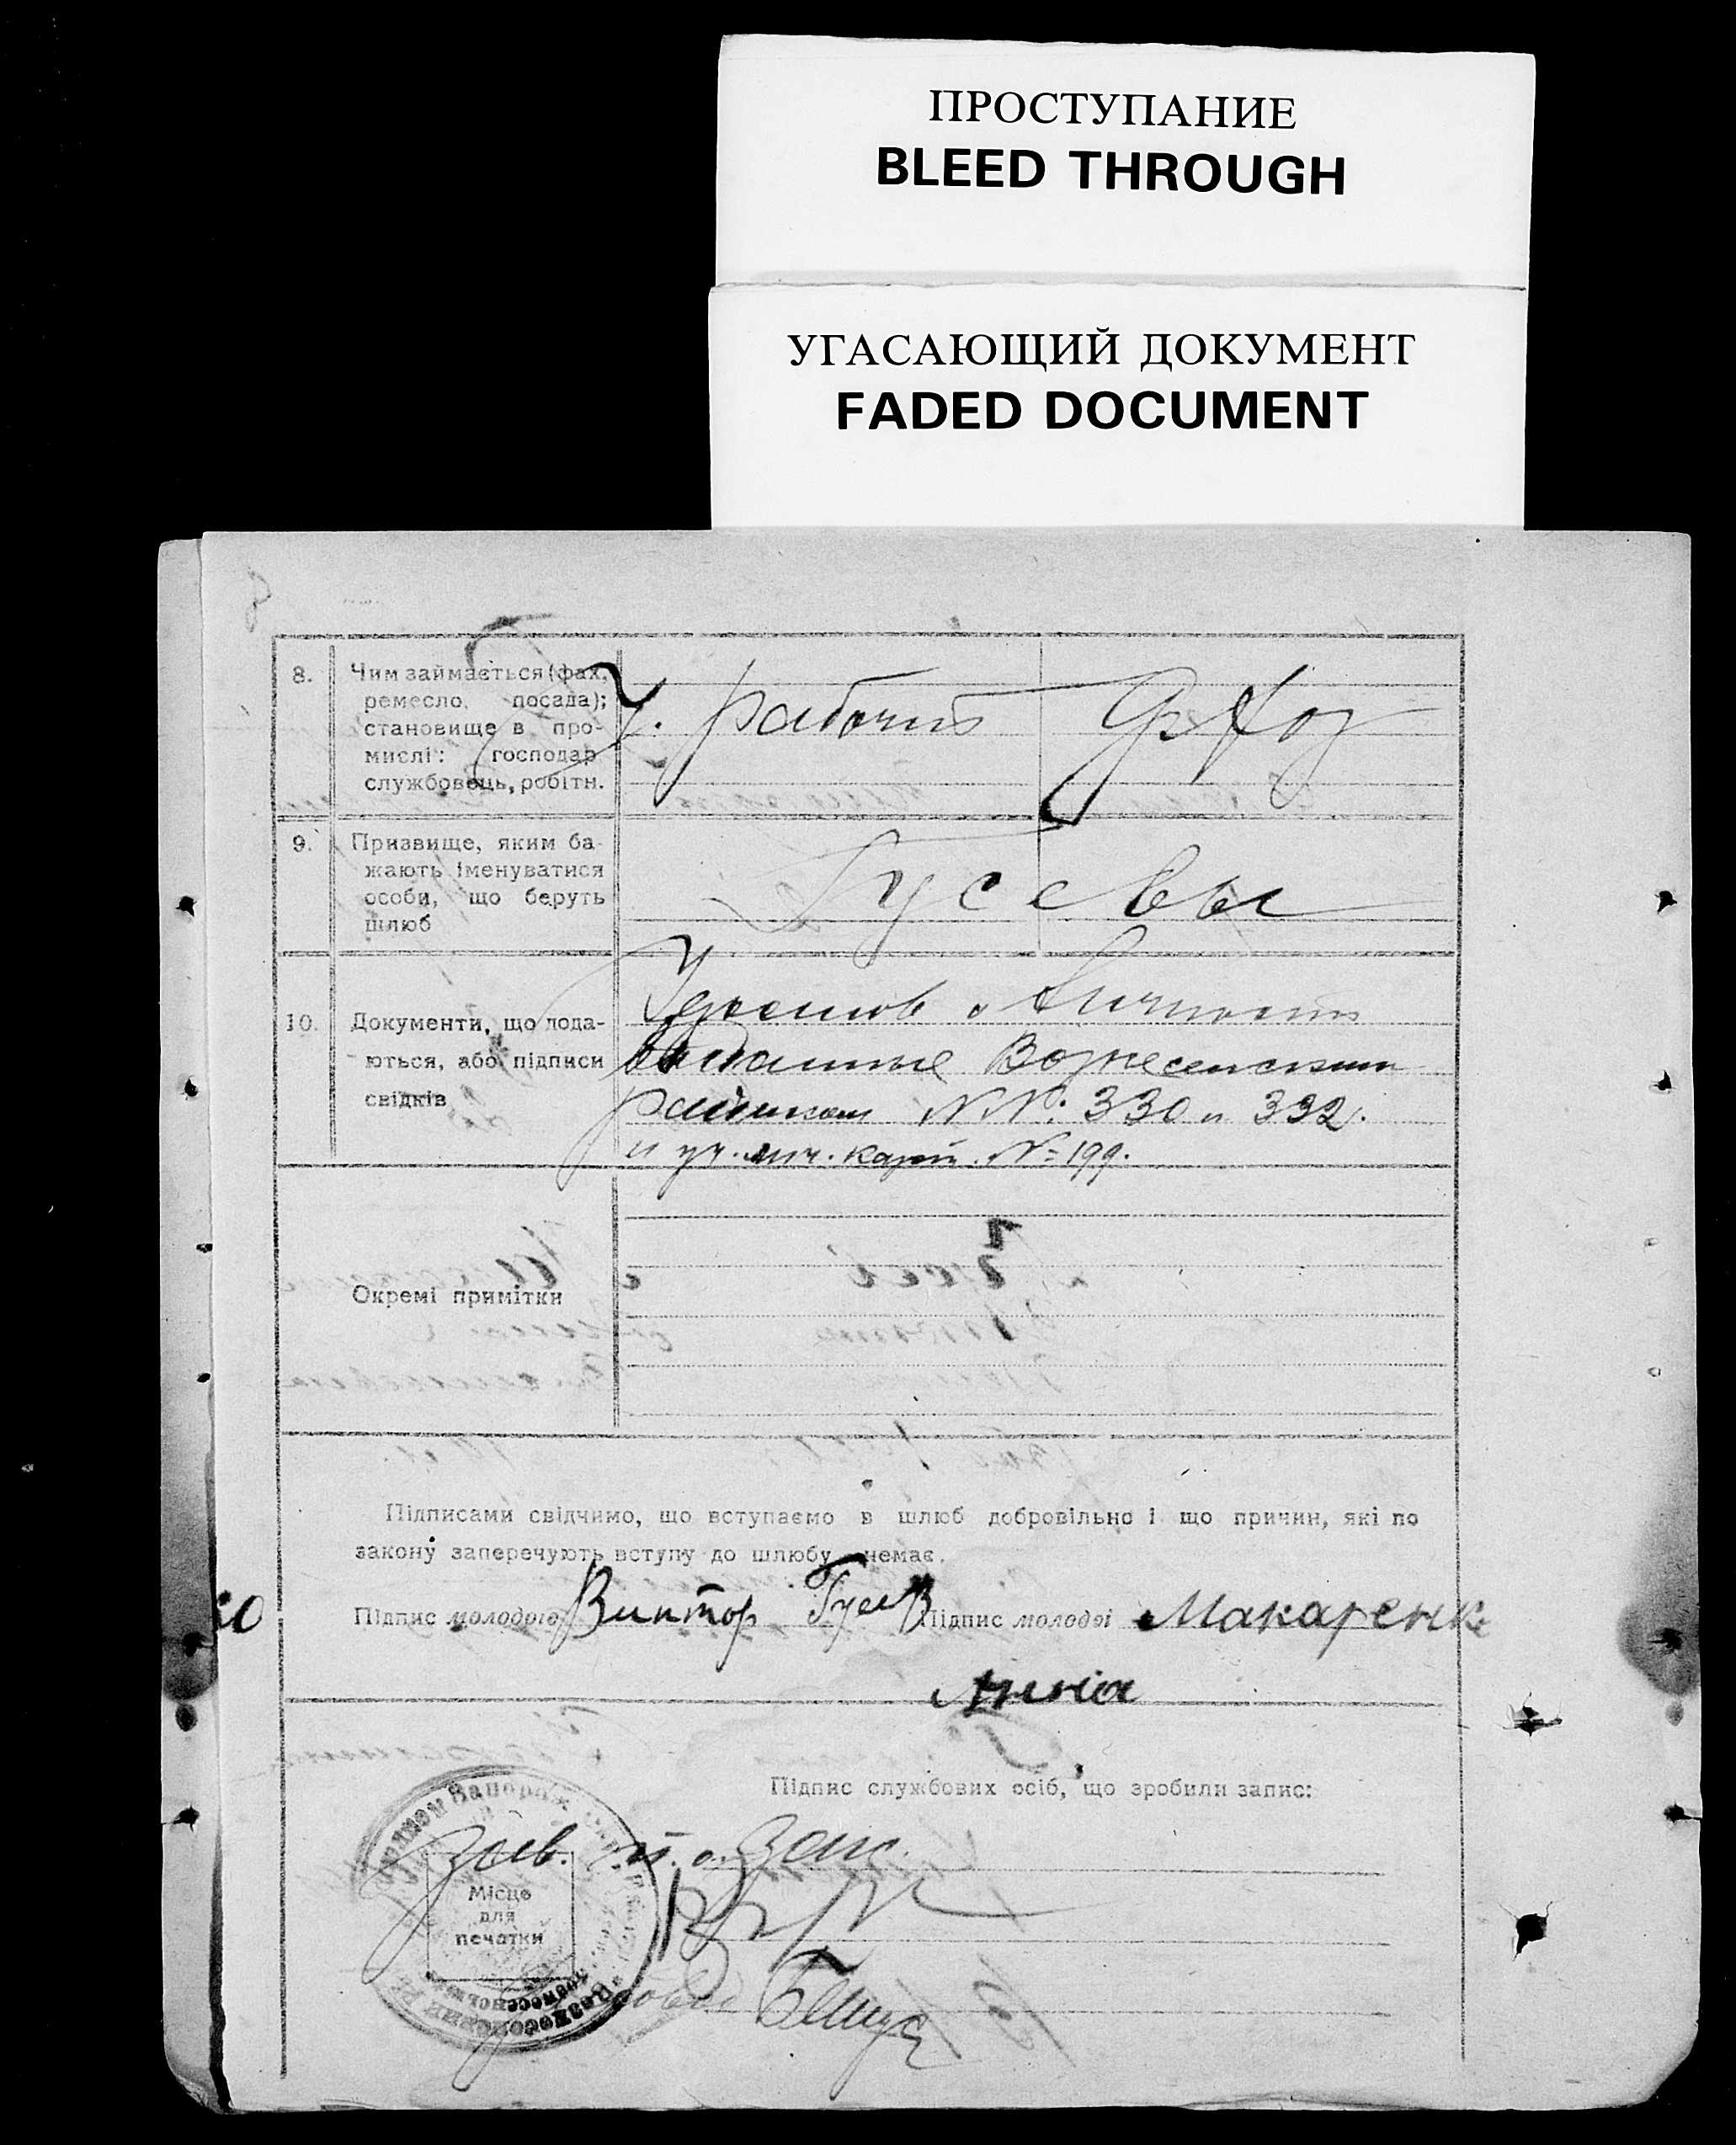 ПРОСТУПАНИЕ
BLEED THROUGH
УГАСАЮЩИЙ ДОКУМЕНТ
FADED DOCUMENT
8.
Чим займається (фах,
ремесло, посада);
становище в про-
мислі: господар
службовець, робітн.
Ч. рабочий
9.
Призвище, яким ба-
жають іменуватися
особи, що беруть
шлюб
Гусевы
10.
Документи, що пода-
ються, або підписи
свідків
о личности
выданные Вознесенским
N N: 330 и 332.
и уч. карт. № 199.
Окремі примітки
Підписами свідчимо, що вступаємо в шлюб добровільно і що причин, які по
закону заперечують вступу до шлюбу немає.
Підпис молодого Виктор Гусев Підпис молодої Макаренко
Анна
Підпис службових осіб, що зробили запис:
Зав. Загс.
Місце
для
печатки